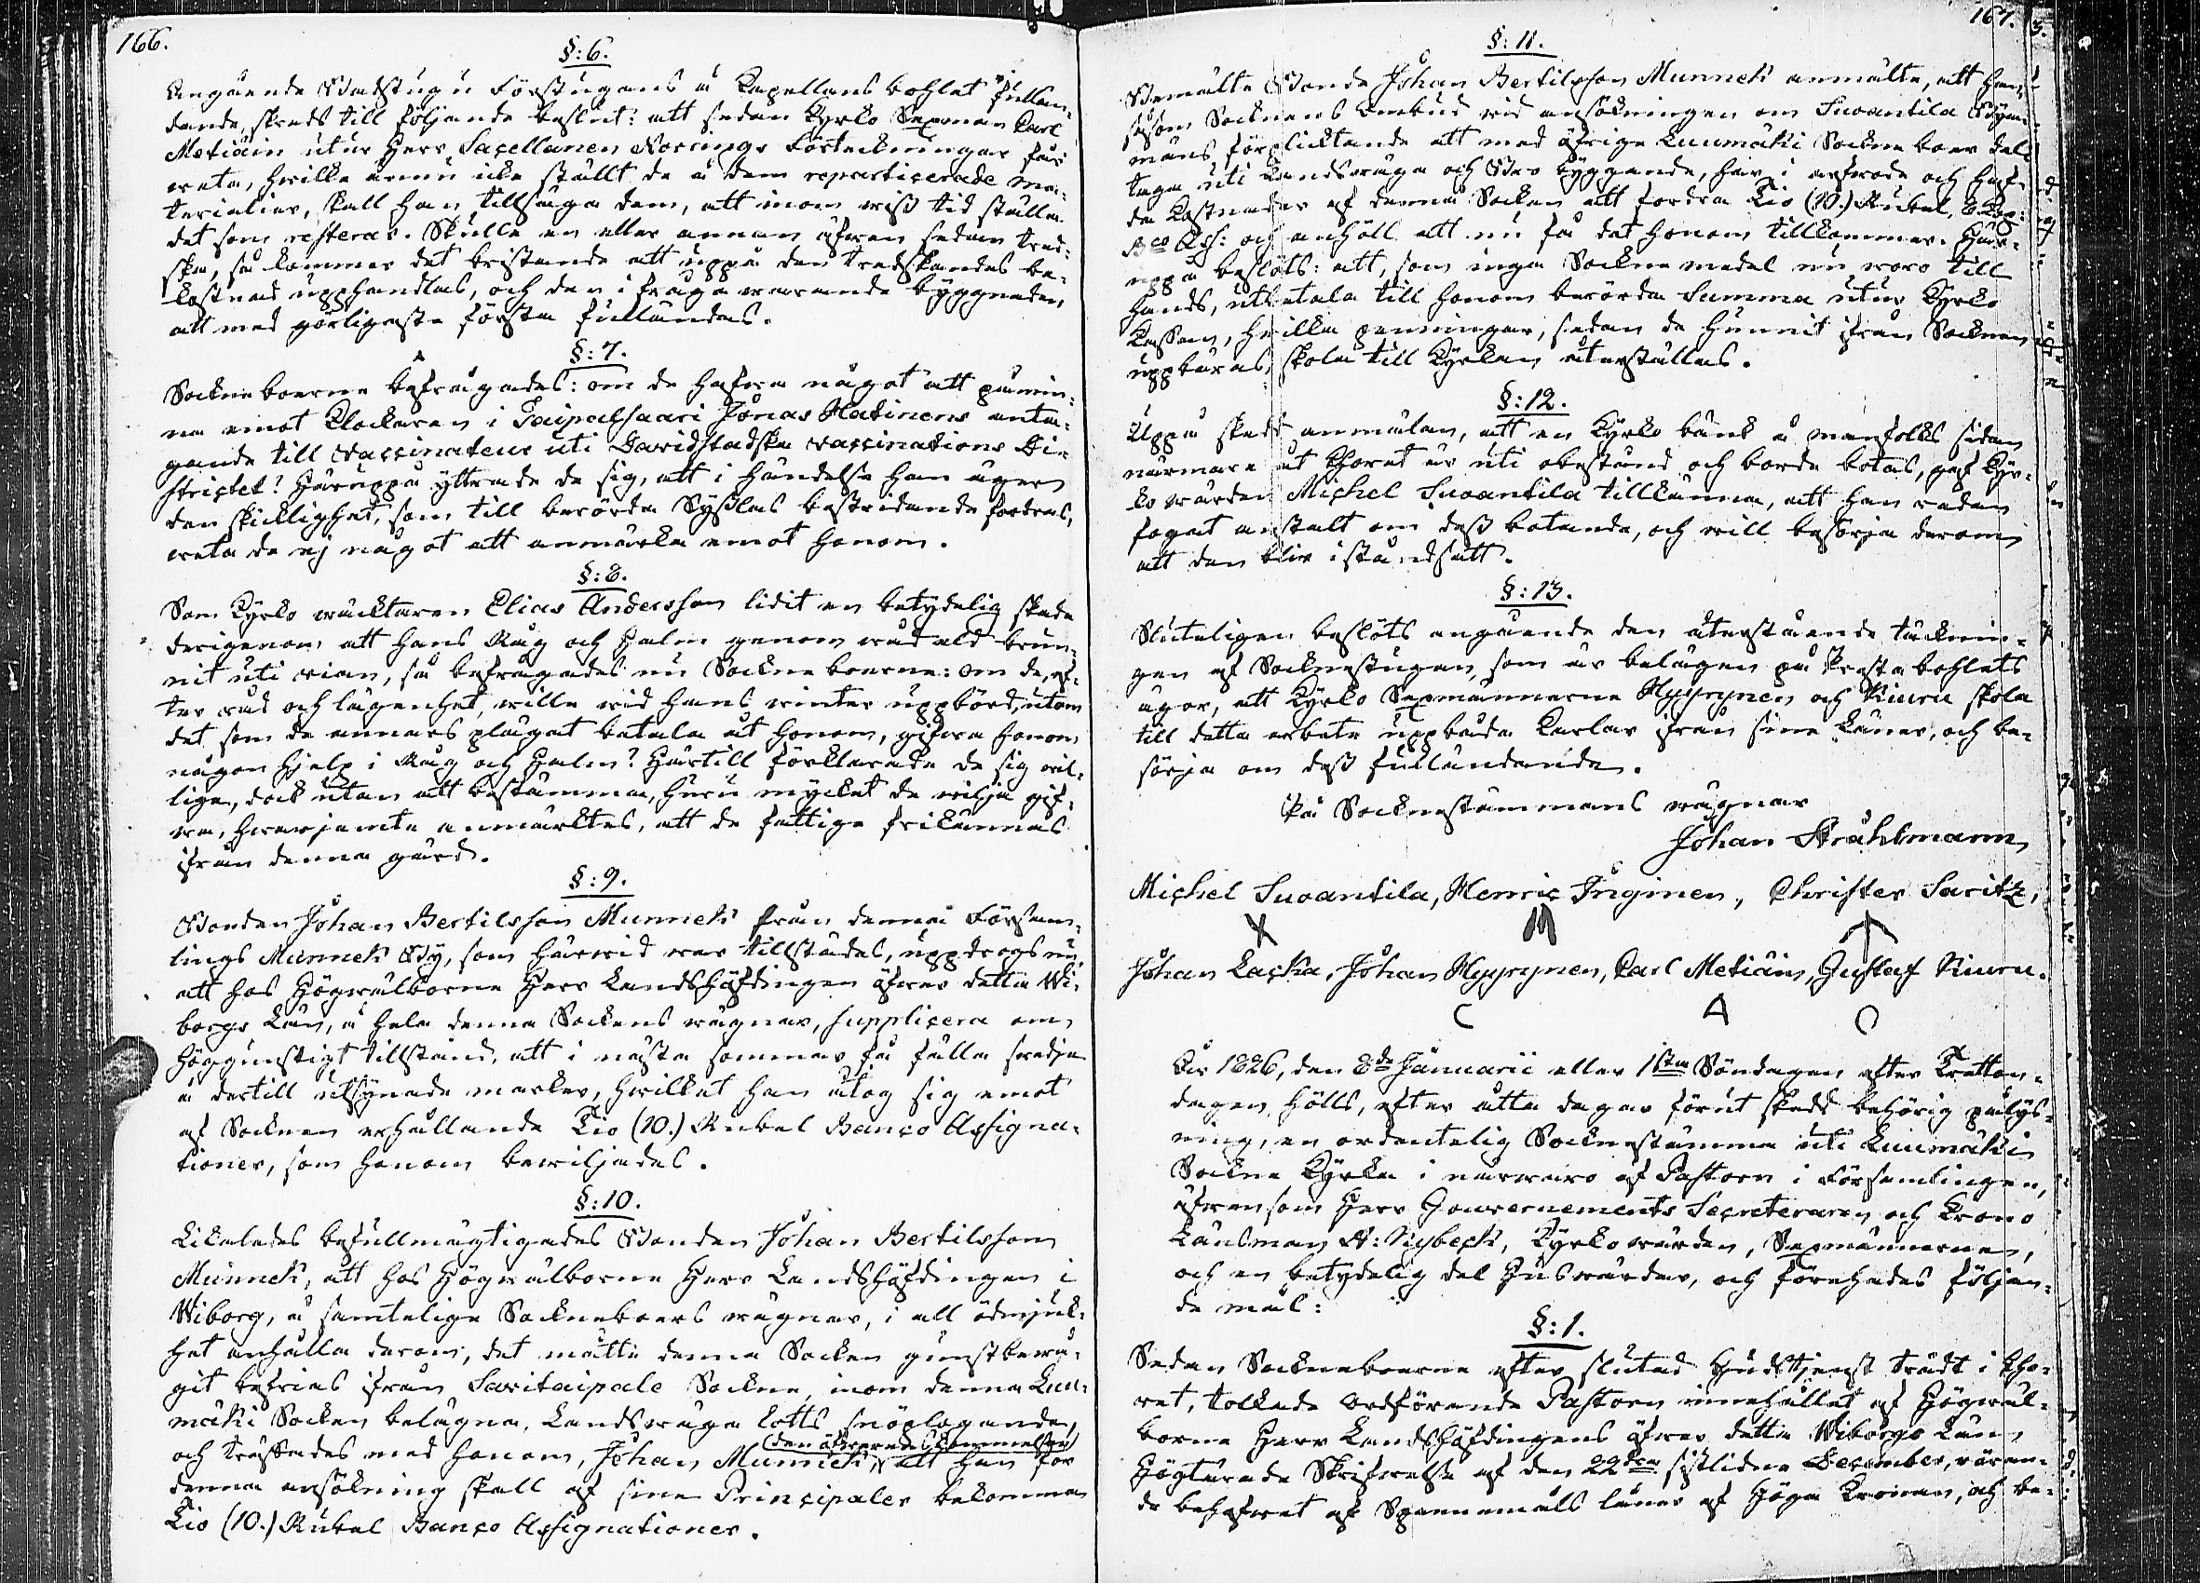 166.
§: 6.
Angående Badstugu Förstugans å Capellans bohlet fullän-
dande, skreds till följande beslut: att sedan Kyrko Sexman Carl
Metiäin utur Herr Sacellanen Kossings Förteckningar får
weta, hwilke ännu icke ställt de å dem reparticerade ma-
terialier, skall han tillsäga dem, att inom wiss tid ställa
det som resterar. Skulle en eller annan äfwen sedan tred-
ska, så kommer det bristande att uppå den tredskandes be-
kostnad upphandlas, och den i fråga warande byggnaden,
att med görligaste första fulländas.
§: 7.
Sockneboerne befrågades: om de hafwa något att påmin-
na emot Klockaren i Taipalsaari Jonas Hatinens anta-
gande till Vaccinateur uti Davidstadska Vaccinations Di-
strictet? Häruppå yttrade de sig, att i händelse han äger
den skicklighet, som till berörda Sysslas bestridande fordras,
weta de ej något att anmärka emot honom.
§: 8.
Som Kyrko wäcktaren Elias Andersson lidit en betydelig skada
derigenom att hans Råg och Halm genom wåd eld brun-
nit uti rian, så befrågades nu Sockneboerne: om de, ef-
ter råd och lägenhet, wille wid hans winter uppbörd, utom
det som de annars plägat betala åt honom, gifwa honom
någon hjelp i Råg och Halm? Härtill förklarade de sig wil-
lige, dock utan att bestämma, huru mycket de wilja gif-
wa, hwarjemte anmärktes, att de fattige frikännas
ifrån denna gärd.
§: 9.
Bonden Johan Bertilsson Munnck från denna Försam-
lings Munnck By, som härwid war tillstädes, uppdrogs nu,
att hos Högwälborne Herr Landshöfdingen öfwer detta Wi-
borgs Län, å hela denna Sockens wägnar, supplicera om
höggunstigt tillstånd, att i nästa sommar få fälla swedja
å dertill utsynade marker, hwilket han åtog sig emot
af Socknen erhållande Tio (10.) Rubel Banco Assigna-
tioner, som honom bewiljades.
§: 10.
Likaledes befullmägtigades Bonden Johan Bertilsson
Munnck, att hos Högwälborne Herr Landshöfdingen i
Wiborg, å samtelige Sockneboers wägnar, i all ödmjuk-
het anhålla derom, det måtte denna Socken gunstbewå-
git befrias ifrån Savitaipale Sockne, inom denna Luu-
mäki Socken belägna, Landswäga lotts snöplogande,
och träffades med honom, Johan Munnck, den öfwerenskommelse, att han för
denna ansökning skall af sine Principaler bekomma
Tio (10.) Rubel Banco Assignationer.
167.
§: 11.
Bemälte Bonde Johan Bertilsson Munnck anmälte, att han,
såsom Socknens Ombud wid ansökningen om Suoantila By-
mäns förpliktande att med öfrige Luumäki Sockne boer del-
taga uti Landswäga och Bro byggande, har i arfwode och haf-
da Kostnader af denna Socken att fordra Tio (10.) Rubel, 8 Kop:
Bco Ass: och anhöll att nu få det honom tillkommer. Här-
uppå beslöts: att, som inga Sockne medel nu woro till
hands, utbetala till honom berörda Summa utur Kyrko
Cassan, hwilka penningar, sedan de hunnit ifrån Socknen
uppbäras, skola till Kyrkan återställas.
§: 12.
Uppå skedd anmälan, att en Kyrko bänk å manfolks sidan
närmare åt Choret är uti obestånd och borde botas, gaf Kyr-
ko wärden Michel Suoantila tillkänna, att han redan
fogat anstalt om dess botande, och will besörja derom
att den blir i ståndsatt.
§: 13.
Sluteligen beslöts angående den återstående täcknin-
gen af Socknestugan, som är belägen på Prosta bohlets
ägor, att Kyrko Sexmännerne Hyyrynen och Kiuru skola
till detta arbete uppbåda Karlar ifrån sine Läner, och be-
sörja om dess fulländande.
På Socknestämmans wägnar
Johan Stråhlmann,
Michel Suoantila, Henric Inginen, Christer Saritz,
Johan Lacka, Johan Hyyrynen, Carl Metiäin, Gustaf Kiuru.
År 1826, den 8de Januarii eller 1sta Söndagen efter Tretton-
dagen, hölls, efter åtta dagar förut skedd behörig pålys-
ning, en ordentelig Socknestämma uti Luumäki
Sockne Kyrka i närwaro af Pastorn i Församlingen,
äfwensom Herr Gouvernements Secreteraren och Krono
Länsman A: Nybeck, Kyrko wärden, Sexmännerne,
och en betydelig del Huswärdar, och förehades följan-
de mål:
§: 1.
Sedan Sockneboerne efter slutad Gudstjenst trädt i Cho-
ret, tolkade ordförande Pastorn innehållet af Högwäl-
borne Herr Landshöfdingens öfwer detta Wiborgs Län,
Högtärade Skrifwelse af den 22dra sistlidne December, röran-
de behofwet af Spannemåls låner af Höga Kronan, och be-